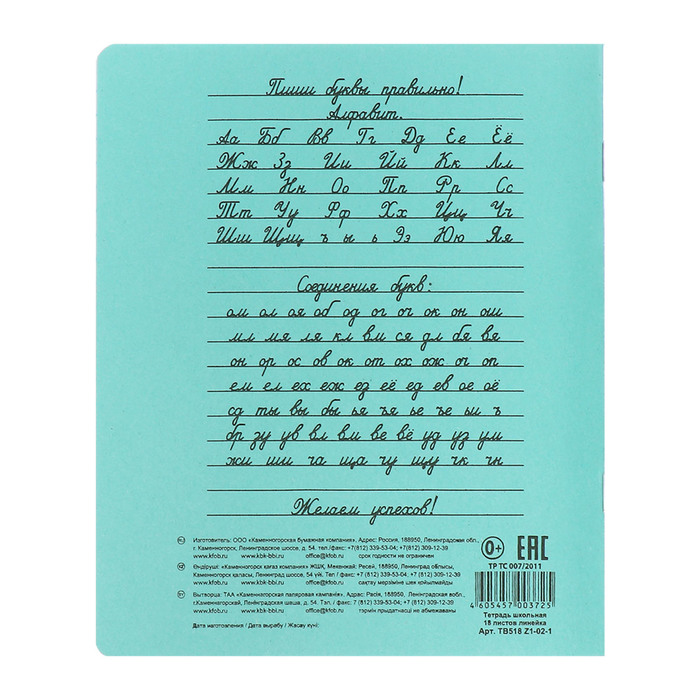 Пиши буквы правильно!
Алфавит.
Аа Бб Вв Гг Дд Ее Ёё
Жж Зз Ии Йй Кк Лл
Мм Нн Оо Пп Рр Сс
Тт Уу Фф Хх Цц Чч
Шш Щщ ъ ы ь Ээ Юю Яя
Соединения букв:
ом ол оя об од ог оч ок он ош
мл мя ля кл вм ся дл бя вя
он ор ос ов ок от ох ож оч оп
ем ел ех еж ез её ед ев ое оё
сд ты вы бы ья ъя ье ъе ьи ъ
бр зу ув вл вм ве вё уд уз ум
жи ши ча ща чу щу чк чн
Желаем успехов!
Изготовитель: ООО «Каменногорская бумажная компания», Адрес: Россия, 188950, Ленинградская обл.,
г. Каменногорск, Ленинградское шоссе, д. 54. тел./факс: +7(812) 339-53-04; +7(812) 309-12-39
www.kfob.ru www.kbk-bbi.ru office@kfob.ru срок годности не ограничен
Өндіруші: «Каменногорск қағаз компания» ЖШҚ, Мекенжай: Ресей, 188950, Ленинград облысы,
Каменногорск қаласы, Ленинград шоссе, 54 үйі. Тел / факс: +7 (812) 339-53-04, +7 (812) 309-12-39
www.kfob.ru www.kbk-bbi.ru office@kfob.ru сақтау мерзіміне шек қойылмайды
Вытворца: ТАА «Каменнагорская папяровая кампанія», Адрас: Расія, 188950, Ленінградская вобл.,
г.Каменнагорский, Ленінградская шаша, д. 54. Тэл. / факс: 7 (812) 339-53-04; +7 (812) 309-12-39
www.kfob.ru www.kbk-bbi.ru office@kfob.ru тэрмін прыдатнасці не абмежаваны
Дата изготовления / Дата вырабу / Жасау күні:
0+ EAC
ТР ТС 007/2011
4 605457 003725
Тетрадь школьная
18 листов линейка
Арт. ТВ518 Z1-02-1